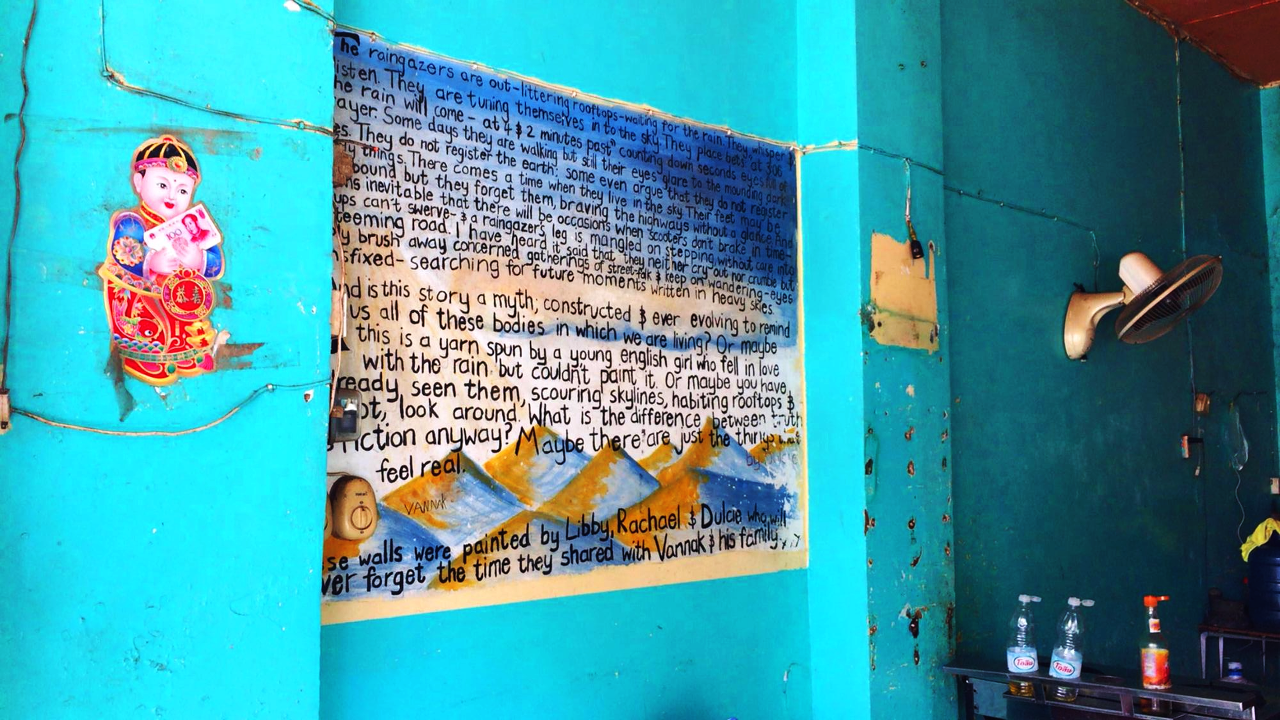 恭喜
100
The raingazers are out-littering rooftops-waiting for the rain. They whisper &
isten. They are tuning themselves in to the sky. They place bets at
he rain will come - at 4 & 2 minutes past" counting down seconds eyes full of
ayer. Some days they are walking but still their eyes glare to the mounding dark
es. They do not register the earth: some even argue that they do not register
ly things. There comes a time when they live in the sky. Their feet may be
bound but they forget them, braving the highways without a glance. And
ns inevitable that there will be occasions when scooters don't brake in time-
ups can't swerve- & a raingazers leg is mangled on stepping without care into
teeming road. I have heard it said that they neither cry out nor crumble but
ly brush away concerned gatherings of street-folk & keep on wandering-eyes
nsfixed- searching for future moments written in heavy skies.
nd is this story a myth; constructed & ever evolving to remind
us all of these bodies in which we are living? Or maybe
this is a yarn spun by a young english girl who fell in love
with the rain but couldn't paint it. Or maybe you have
ready seen them, scouring skylines, habiting rooftops &
ot, look around. What is the difference between truth
fiction anyway? Maybe there are just the things that
feel real.
by
VANNAK
se walls were painted by Libby, Rachael & Dulcie who will
ver forget the time they shared with Vannak & his family.